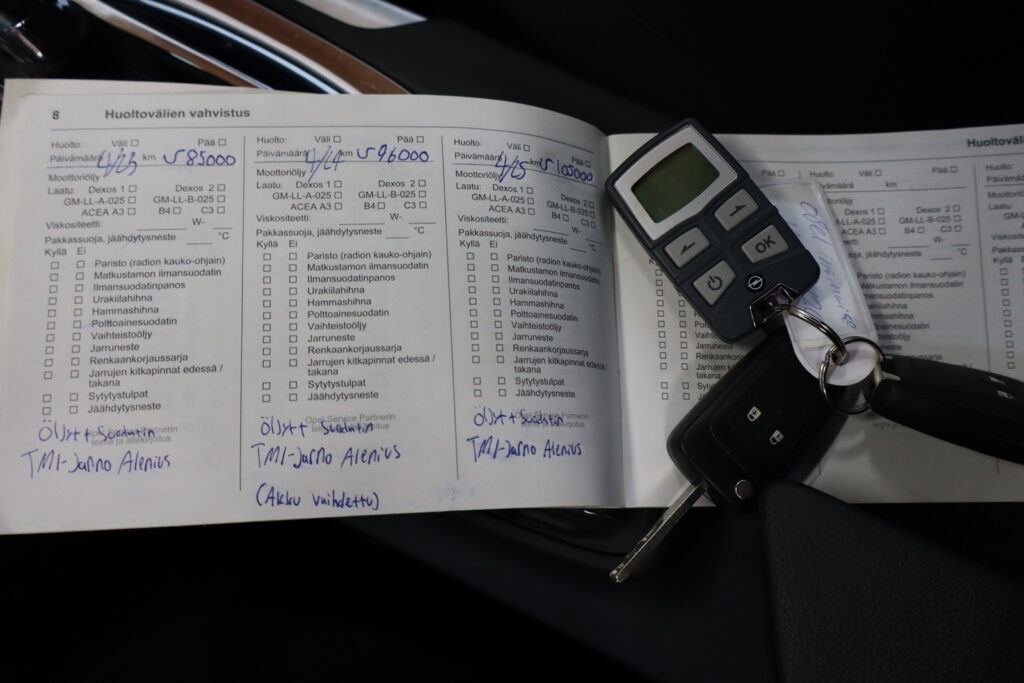 8 Huoltovälien vahvistus
Huolto: Väli Pää
Päivämäärä 4/23 km 85000
Moottoriöljy
Laatu: Dexos 1 Dexos 2
GM-LL-A-025 GM-LL-B-025
ACEA A3 B4 C3
Viskositeetti: W-
Pakkassuoja, jäähdytysneste °C
Kyllä Ei
Paristo (radion kauko-ohjain)
Matkustamon ilmansuodatin
Ilmansuodatinpanos
Urakiilahihna
Hammashihna
Polttoainesuodatin
Vaihteistoöljy
Jarruneste
Renkaankorjaussarja
Jarrujen kitkapinnat edessä /
takana
Sytytystulpat
Jäähdytysneste
Opel-Service Partnerin
leima ja allekirjoitus
Öljyt + suodatin
TMI-Jarno Alenius
Huolto: Väli Pää
Päivämäärä 4/24 km 96000
Moottoriöljy
Laatu: Dexos 1 Dexos 2
GM-LL-A-025 GM-LL-B-025
ACEA A3 B4 C3
Viskositeetti: W-
Pakkassuoja, jäähdytysneste °C
Kyllä Ei
Paristo (radion kauko-ohjain)
Matkustamon ilmansuodatin
Ilmansuodatinpanos
Urakiilahihna
Hammashihna
Polttoainesuodatin
Vaihteistoöljy
Jarruneste
Renkaankorjaussarja
Jarrujen kitkapinnat edessä /
takana
Sytytystulpat
Jäähdytysneste
Opel-Service Partnerin
leima ja allekirjoitus
Öljyt + suodatin
TMI-Jarno Alenius
(Akku vaihdettu)
Huolto: Väli Pää
Päivämäärä 4/25 105000
Moottoriöljy
Laatu: Dexos 1 Dexos 2
GM-LL-A-025 GM-LL-B-025
ACEA A3 B4 C3
Viskositeetti: W-
Pakkassuoja, jäähdytysneste °C
Kyllä Ei
Paristo (radion kauko-ohjain)
Matkustamon ilmansuodatin
Ilmansuodatinpanos
Urakiilahihna
Hammashihna
Polttoainesuodatin
Vaihteistoöljy
Jarruneste
Renkaankorjaussarja
Jarrujen kitkapinnat edessä /
takana
Sytytystulpat
Jäähdytysneste
Opel-Service Partnerin
leima ja allekirjoitus
Öljyt + suodatin
TMI-Jarno Alenius
OK
Opel
Väli Pää
km
GM-LL-B-025
B4 C3
W-
jäähdytysneste °C
(radion kauko-ohjain)
ilmansuodatin
Renkaankorjaussarja